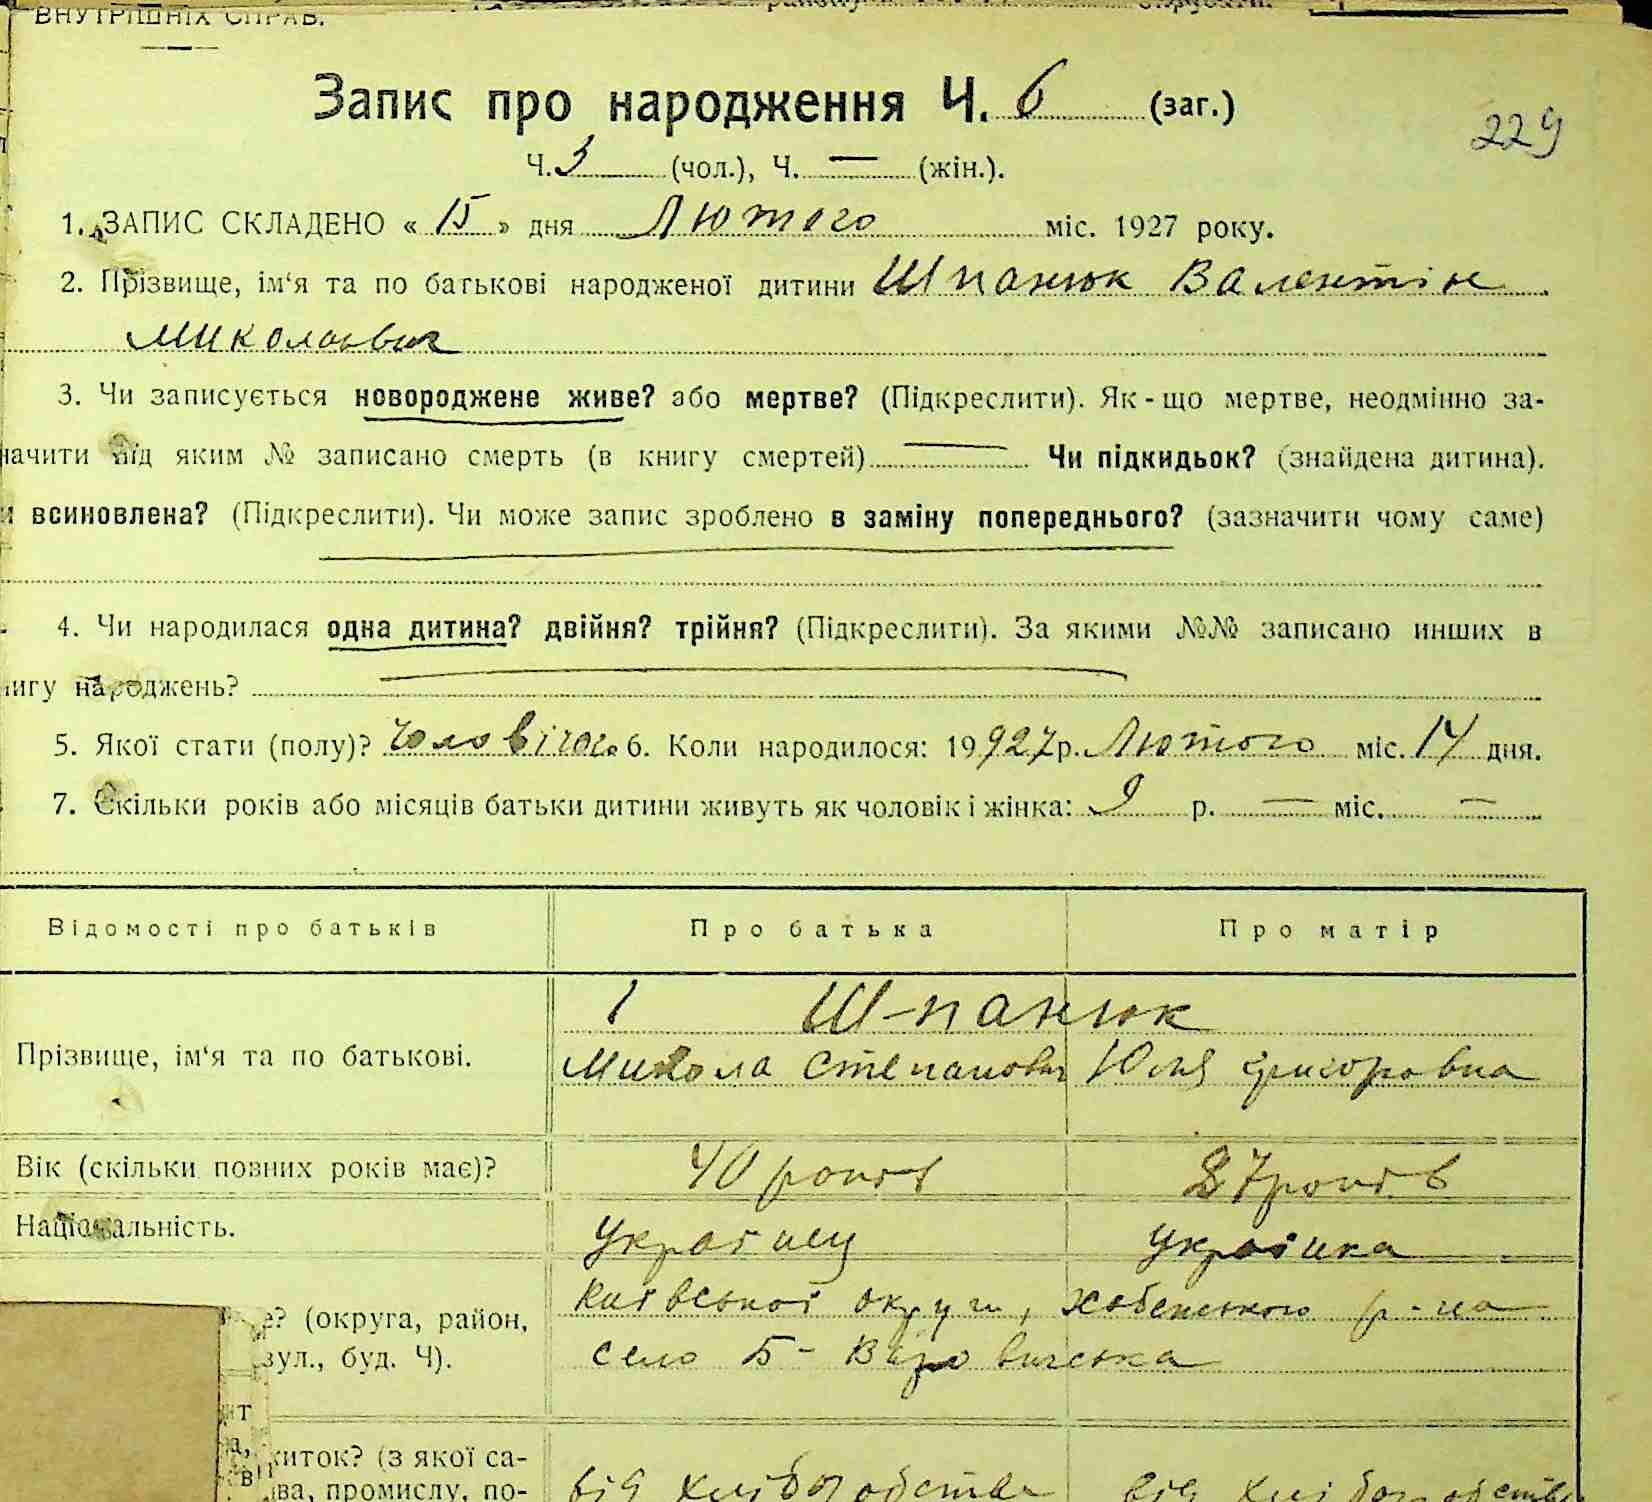 ВНУТРІШНІХ СПРАВ.
Запис про народження Ч. 6 (заг.)
229
Ч. 3 (чол.), Ч. — (жін.).
1. ЗАПИС СКЛАДЕНО « 15 » дня Лютого міс. 1927 року.
2. Прізвище, ім‘я та по батькові народженої дитини Шпанюк Валентін
Миколаєвич
3. Чи записується новороджене живе? або мертве? (Підкреслити). Як-що мертве, неодмінно за-
начити під яким № записано смерть (в книгу смертей) — Чи підкидьок? (знайдена дитина).
и всиновлена? (Підкреслити). Чи може запис зроблено в заміну попереднього? (зазначити чому саме)
4. Чи народилася одна дитина? двійня? трійня? (Підкреслити). За якими №№ записано инших в
нигу народжень?
5. Якої стати (полу)? чоловічого 6. Коли народилося: 19927р. Лютого міс. 14 дня.
7. Скільки років або місяців батьки дитини живуть як чоловік і жінка: 9 р. — міс. —
Відомості про батьків Про батька Про матір
1 Шпанюк
Прізвище, ім‘я та по батькові. Микола Степанович Юлія Григоровна
Вік (скільки повних років має)? 40 років 27 років
Національність. Українец Українка
Київської округи, Хабенського р-на
е? (округа, район,
вул., буд. Ч). село Б-Варовиська
житок? (з якої са-
ва, промислу, по- від хліборобства від хліборобства